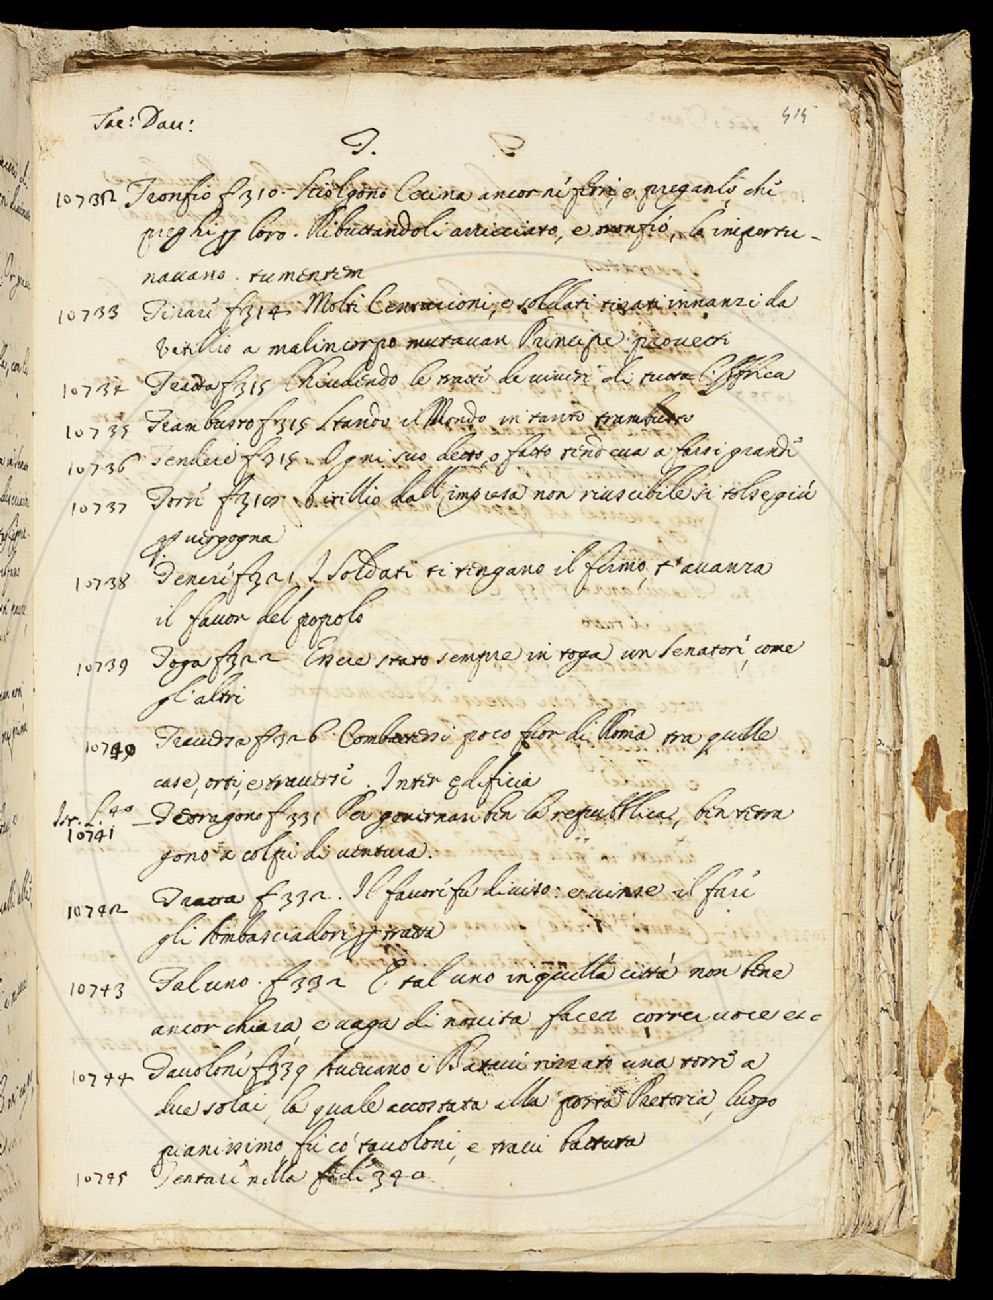 Tac: Dau:
515
T.
10732 Tronfio f 310 - Sciolgono Cecina ancor ni fieri, e preganlo, chi
preghi p loro. Ributtandoli arricciato, e tronfio, lo importu-
nauano. tumentem
10733 Tirari f 314 Molti Centurioni, e soldati tirati innanzi da
Vitellio a malincorpo mutauan Principe provecti
10734 Tratta f 315 Chiudendo le tratti di viveri di tutta l'Affrica
10735 Trambusto f 315 Stando il Mondo in tanto trambusto
10736 Tendere f 315 Ogni suo detto, o fatto tendeua a farsi grandi
10737 Torri f 318 Vitellio dall'impresa non riuscibile si tolse giù
p vergogna
10738 Teneri f 321 I Soldati ti tengano il fermo, t'avanza
il fauor del popolo
10739 Toga f 322 Essere stato sempre in toga un Senatori, come
gl'altri
10740 Traversa f 326 Combattessi poco fuor di Roma tra quelle
case, orti, e traversi. Inter ędificia
Jor. L. 40
10741 Tetragono f 331 Per governari ben la republlica, ben tetra
gono a colpi di ventura.
10742 Tratta f 332. Il favori fu diviso: e vinse il fari
gli Ambasciadori p tratta
10743 Taluno. f 332 E tal uno in quella città non bene
ancor chiara, e vaga di novità facea correr voce etc
10744 Tavoloni f 339 Aueuano i Bataui rizzato una torri a
due solai, la quale accostata alla porta Pretoria, luogo
pianissimo, fu cò tauoloni, e traui battuta
10745 Tentari nella fede 340